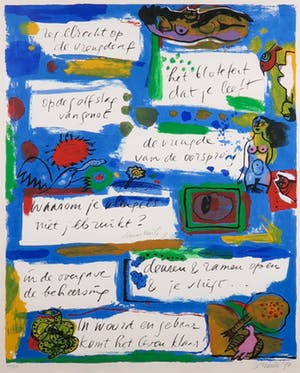 op
de vreugdeof
het blote feit
dat je leeft
op de golfslag
van genot
de vreugde
van de oorsprong
waarom je vleugels
niet gebruikt?
in de overgave
de beheersing
deuren & ramen open
& je vliegt...
In woord en gebaar
komt het leven klaar